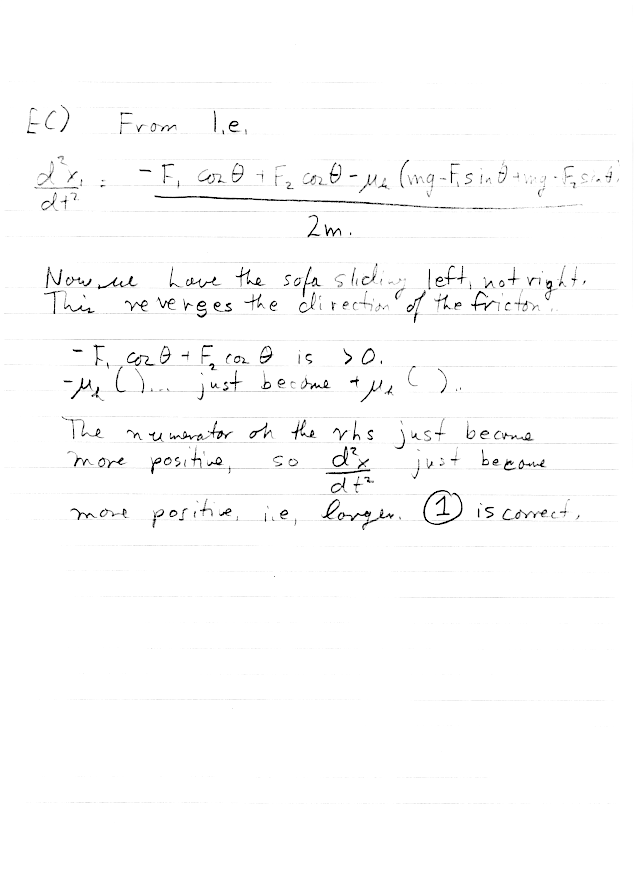 EC) From 1.e.
d²x₁/dt² = (-F₁ cos θ + F₂ cos θ - μₖ (mg - F₁ sin θ + mg - F₂ sin θ)) / 2m.
Now we have the sofa sliding left, not right.
This reverges the direction of the fricton.
-F₁ cos θ + F₂ cos θ is > 0.
-μₖ ( )... just become + μₖ ( )..
The numerator on the rhs just become
more positive, so d²x/dt² just become
more positive, i.e, larger. ① is correct.